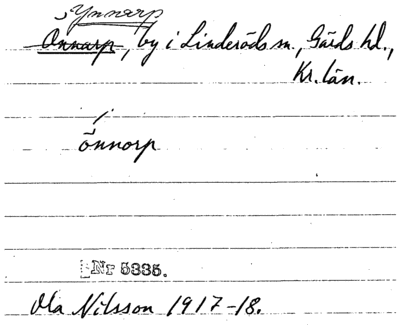 Ynnarp
Onnarp, by i Linderöds sn., Gärds hd.,
Kr. län.
önnorp
Nr 5335.
Ola Nilsson 1917-18.